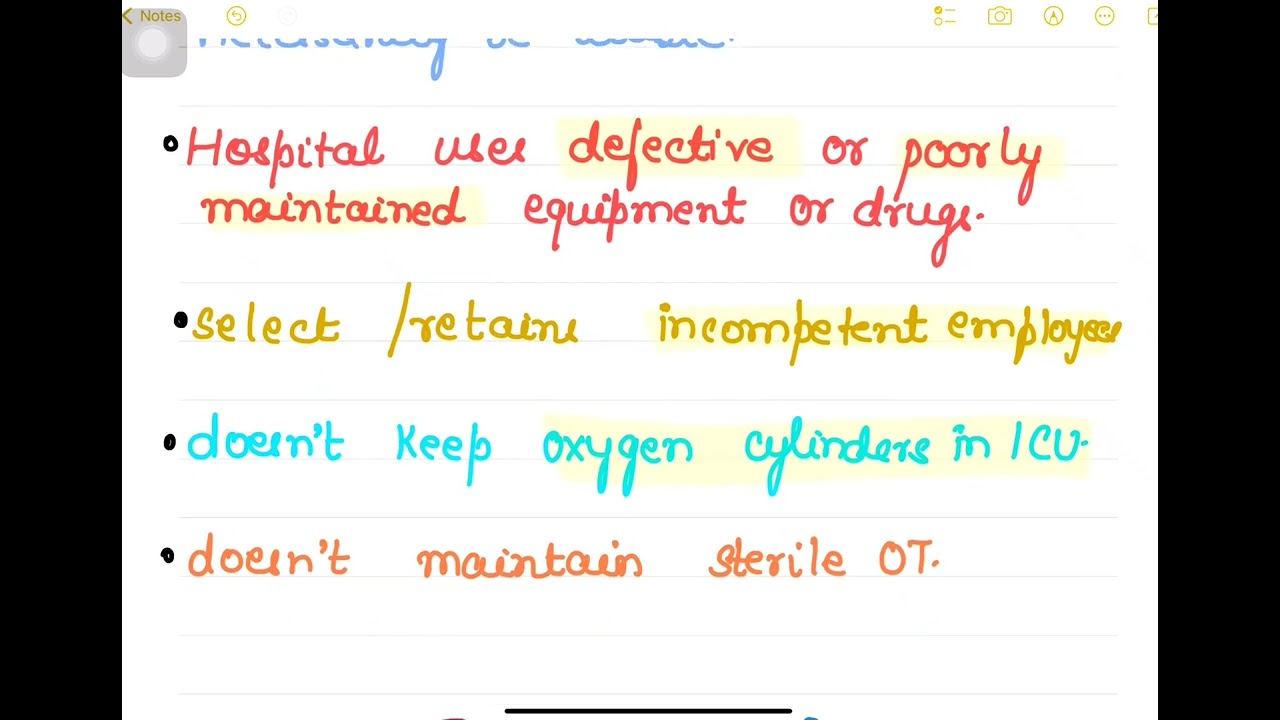 Notes
• Hospital uses defective or poorly
maintained equipment or drugs.
• select /retains incompetent employees
• doesn't keep oxygen cylinders in ICU.
• doesn't maintain sterile OT.